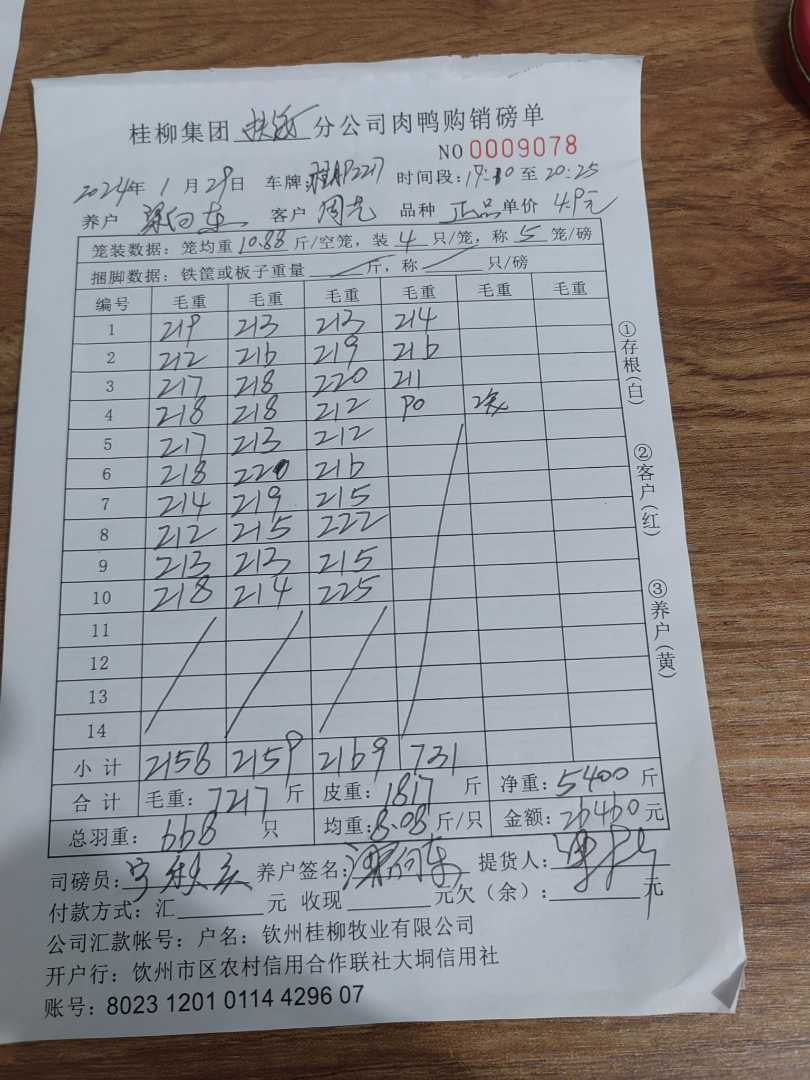 桂柳集团 分公司肉鸭购销磅单
NO 0009078
2024年 1月29日 车牌: 桂AP2217 时间段: 至 20:25
养户 梁向东 客户 品种 正品 单价 4.9元
笼装数据: 笼均重 10.88 斤/空笼, 装 4 只/笼, 称 5 笼/磅
捆脚数据: 铁筐或板子重量 斤, 称 只/磅
编号 毛重 毛重 毛重 毛重 毛重 毛重
1 219 213 213 214
2 212 216 219 216
3 217 218 220 211
4 218 218 212 90
5 217 213 212
6 218 220 216
7 214 219 215
8 212 215 222
9 213 213 215
10 218 214 225
11
12
13
14
小计 2158 2159 2169 731
合计 毛重: 7217 斤 皮重: 1817 斤 净重: 5400 斤
总羽重: 668 只 均重: 8.08 斤/只 金额: 26460 元
司磅员: 养户签名: 梁向东 提货人:
付款方式: 汇 元 收现 元欠(余): 元
公司汇款帐号: 户名: 钦州桂柳牧业有限公司
开户行: 饮州市区农村信用合作联社大垌信用社
账号: 8023 1201 0114 4296 07
①存根(白)
②客户(红)
③养户(黄)